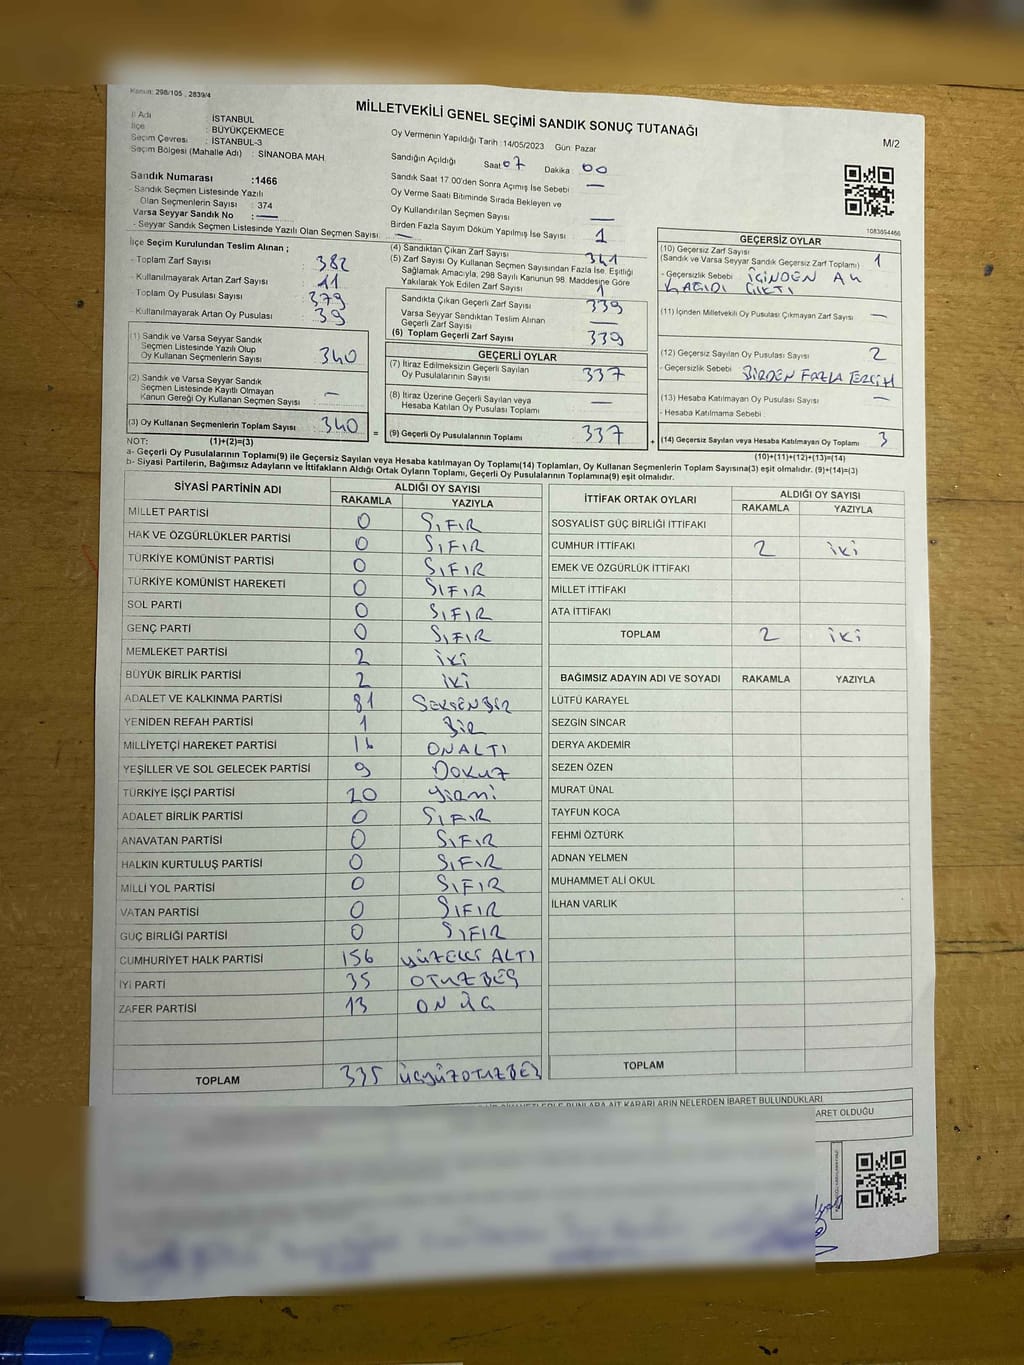 Kanun: 298/105 , 2839/4
MİLLETVEKİLİ GENEL SEÇİMİ SANDIK SONUÇ TUTANAĞI
M/2
İl Adı : İSTANBUL
İlçe : BÜYÜKÇEKMECE
Seçim Çevresi : İSTANBUL-3
Seçim Bölgesi (Mahalle Adı) : SİNANOBA MAH.
Oy Vermenin Yapıldığı Tarih : 14/05/2023 Gün: Pazar
Sandığın Açıldığı Saat 07 Dakika 00
Sandık Saat 17.00'den Sonra Açımış İse Sebebi —
Oy Verme Saati Bitiminde Sırada Bekleyen ve
Oy Kullandırılan Seçmen Sayısı —
Birden Fazla Sayım Döküm Yapılmış İse Sayısı : 1
Sandık Numarası :1466
- Sandık Seçmen Listesinde Yazılı
Olan Seçmenlerin Sayısı : 374
Varsa Seyyar Sandık No : —
- Seyyar Sandık Seçmen Listesinde Yazılı Olan Seçmen Sayısı: —
1083654466
İlçe Seçim Kurulundan Teslim Alınan ;
- Toplam Zarf Sayısı : 382
- Kullanılmayarak Artan Zarf Sayısı : 41
- Toplam Oy Pusulası Sayısı : 379
- Kullanılmayarak Artan Oy Pusulası : 39
(1) Sandık ve Varsa Seyyar Sandık
Seçmen Listesinde Yazılı Olup
Oy Kullanan Seçmenlerin Sayısı : 340
(2) Sandık ve Varsa Seyyar Sandık
Seçmen Listesinde Kayıtlı Olmayan
Kanun Gereği Oy Kullanan Seçmen Sayısı : —
(3) Oy Kullanan Seçmenlerin Toplam Sayısı : 340
(4) Sandıktan Çıkan Zarf Sayısı : 341
(5) Zarf Sayısı Oy Kullanan Seçmen Sayısından Fazla İse, Eşitliği
Sağlamak Amacıyla, 298 Sayılı Kanunun 98. Maddesine Göre
Yakılarak Yok Edilen Zarf Sayısı : 1
Sandıkta Çıkan Geçerli Zarf Sayısı : 339
Varsa Seyyar Sandıktan Teslim Alınan
Geçerli Zarf Sayısı : —
(6) Toplam Geçerli Zarf Sayısı : 339
GEÇERLİ OYLAR
(7) İtiraz Edilmeksizin Geçerli Sayılan
Oy Pusulalarının Sayısı : 337
(8) İtiraz Üzerine Geçerli Sayılan veya
Hesaba Katılan Oy Pusulası Toplamı : —
= (9) Geçerli Oy Pusulalarının Toplamı : 337
GEÇERSİZ OYLAR
(10) Geçersiz Zarf Sayısı
(Sandık ve Varsa Seyyar Sandık Geçersiz Zarf Toplamı) : 1
- Geçersizlik Sebebi : İÇİNDEN AK
KAĞIDI ÇIKTI
(11) İçinden Milletvekili Oy Pusulası Çıkmayan Zarf Sayısı : —
(12) Geçersiz Sayılan Oy Pusulası Sayısı : 2
- Geçersizlik Sebebi : BİRDEN FAZLA TERCİH
(13) Hesaba Katılmayan Oy Pusulası Sayısı : —
- Hesaba Katılmama Sebebi :
+ (14) Geçersiz Sayılan veya Hesaba Katılmayan Oy Toplamı : 3
NOT: (1)+(2)=(3)
(10)+(11)+(12)+(13)=(14)
a- Geçerli Oy Pusulalarının Toplamı(9) ile Geçersiz Sayılan veya Hesaba Katılmayan Oy Toplamı(14) Toplamları, Oy Kullanan Seçmenlerin Toplam Sayısına(3) eşit olmalıdır. (9)+(14)=(3)
b- Siyasi Partilerin, Bağımsız Adayların ve İttifakların Aldığı Ortak Oyların Toplamı, Geçerli Oy Pusulalarının Toplamına(9) eşit olmalıdır.
SİYASİ PARTİNİN ADI ALDIĞI OY SAYISI
RAKAMLA YAZIYLA
MİLLET PARTİSİ 0 SIFIR
HAK VE ÖZGÜRLÜKLER PARTİSİ 0 SIFIR
TÜRKİYE KOMÜNİST PARTİSİ 0 SIFIR
TÜRKİYE KOMÜNİST HAREKETİ 0 SIFIR
SOL PARTİ 0 SIFIR
GENÇ PARTİ 0 SIFIR
MEMLEKET PARTİSİ 2 iki
BÜYÜK BİRLİK PARTİSİ 2 iki
ADALET VE KALKINMA PARTİSİ 81 SEKSENBİR
YENİDEN REFAH PARTİSİ 1 BİR
MİLLİYETÇİ HAREKET PARTİSİ 16 ONALTI
YEŞİLLER VE SOL GELECEK PARTİSİ 9 DOKUZ
TÜRKİYE İŞÇİ PARTİSİ 20 yirmi
ADALET BİRLİK PARTİSİ 0 SIFIR
ANAVATAN PARTİSİ 0 SIFIR
HALKIN KURTULUŞ PARTİSİ 0 SIFIR
MİLLİ YOL PARTİSİ 0 SIFIR
VATAN PARTİSİ 0 SIFIR
GÜÇ BİRLİĞİ PARTİSİ 0 SIFIR
CUMHURİYET HALK PARTİSİ 156 yÜZELLİ ALTI
İYİ PARTİ 35 OTUZBEŞ
ZAFER PARTİSİ 13 ON ÜÇ
TOPLAM 335 ÜÇyÜZOTUZBEŞ
İTTİFAK ORTAK OYLARI ALDIĞI OY SAYISI
RAKAMLA YAZIYLA
SOSYALİST GÜÇ BİRLİĞİ İTTİFAKI
CUMHUR İTTİFAKI 2 iki
EMEK VE ÖZGÜRLÜK İTTİFAKI
MİLLET İTTİFAKI
ATA İTTİFAKI
TOPLAM 2 iki
BAĞIMSIZ ADAYIN ADI VE SOYADI RAKAMLA YAZIYLA
LÜTFÜ KARAYEL
SEZGİN SİNCAR
DERYA AKDEMİR
SEZEN ÖZEN
MURAT ÜNAL
TAYFUN KOCA
FEHMİ ÖZTÜRK
ADNAN YELMEN
MUHAMMET ALİ OKUL
İLHAN VARLIK
TOPLAM
BUNLARA AİT KARARLARIN NELERDEN İBARET BULUNDUKLARI
OLDUĞU